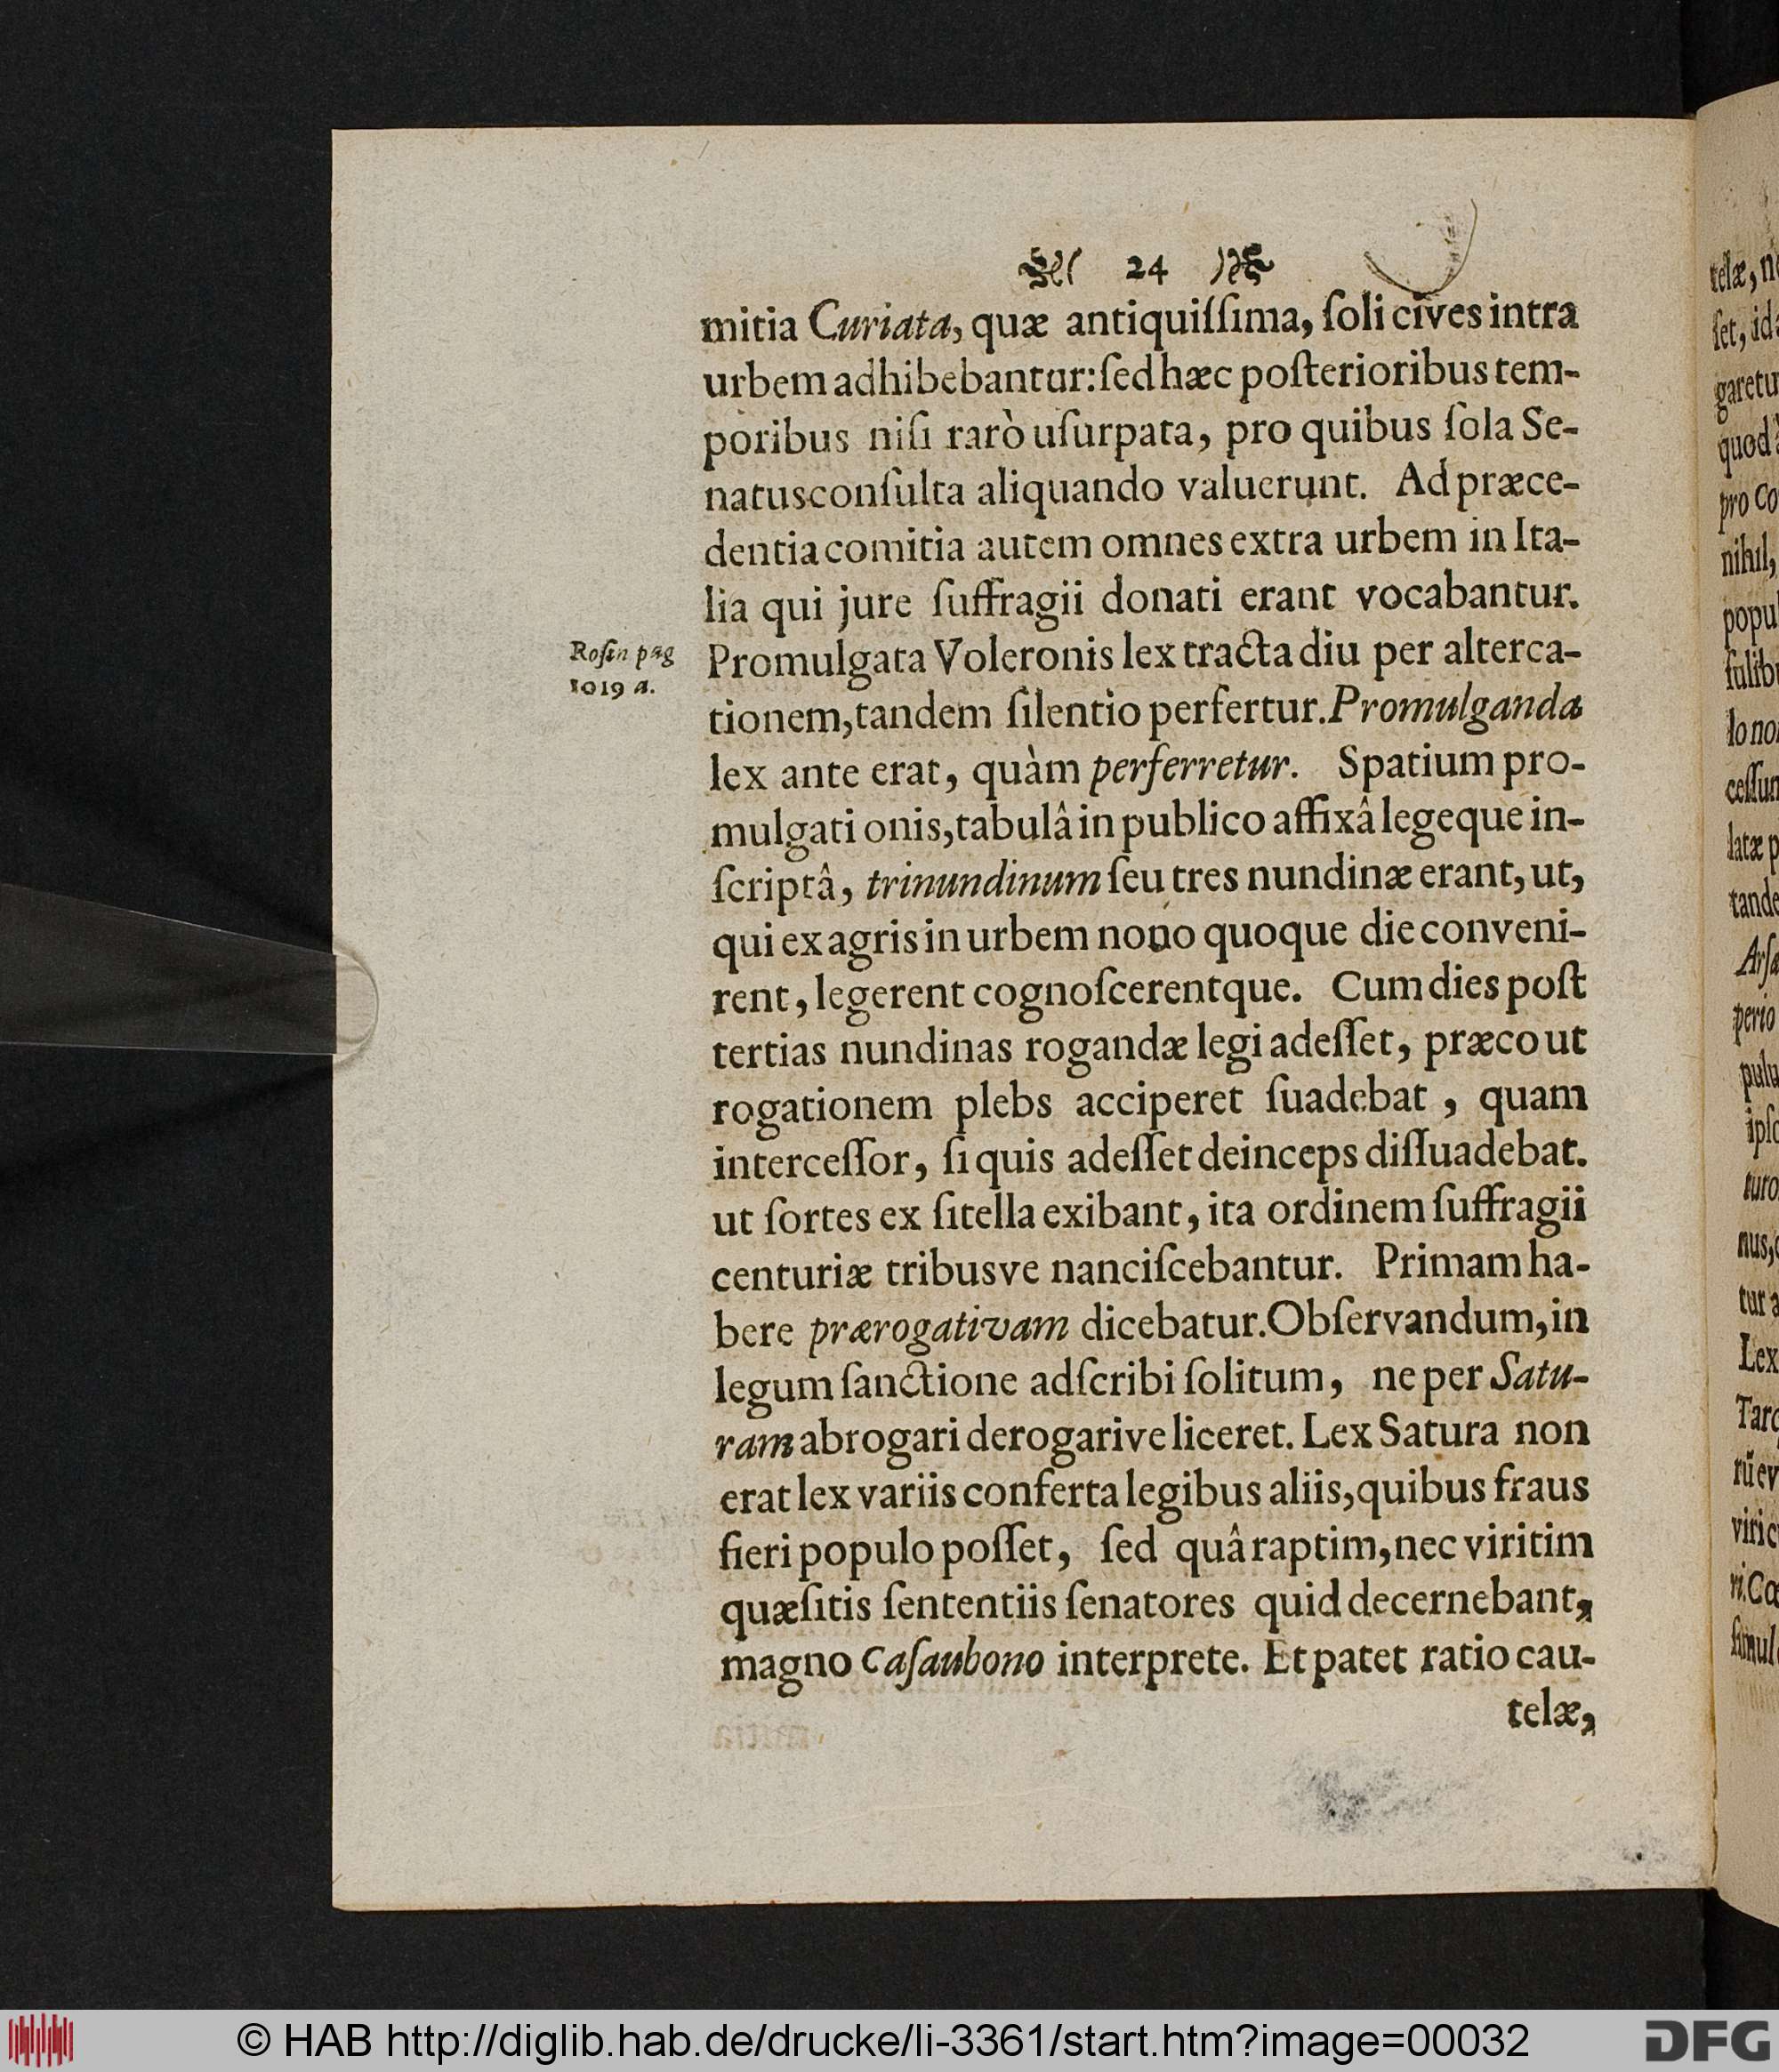 24
mitia Curiata, quæ antiquiſſima, ſoli cives intra
urbem adhibebantur: ſed hæc poſterioribus tem-
poribus niſi rarò uſurpata, pro quibus ſola Se-
natusconſulta aliquando valuerunt. Ad præce-
dentia comitia autem omnes extra urbem in Ita-
lia qui jure ſuffragii donati erant vocabantur.
Roſin pag
1019 a.
Promulgata Voleronis lex tracta diu per alterca-
tionem, tandem ſilentio perfertur. Promulganda
lex ante erat, quàm perferretur. Spatium pro-
mulgati onis, tabulâ in publico affixâ legeque in-
ſcriptâ, trinundinum ſeu tres nundinæ erant, ut,
qui ex agris in urbem nono quoque die conveni-
rent, legerent cognoſcerentque. Cum dies poſt
tertias nundinas rogandæ legi adeſſet, præco ut
rogationem plebs acciperet ſuadebat, quam
interceſſor, ſi quis adeſſet deinceps diſſuadebat.
ut ſortes ex ſitella exibant, ita ordinem ſuffragii
centuriæ tribusve nanciſcebantur. Primam ha-
bere prærogativam dicebatur. Obſervandum, in
legum ſanctione adſcribi ſolitum, ne per Satu-
ram abrogari derogarive liceret. Lex Satura non
erat lex variis conferta legibus aliis, quibus fraus
fieri populo poſſet, ſed quâ raptim, nec viritim
quæſitis ſententiis ſenatores quid decernebant,
magno Caſaubono interprete. Et patet ratio cau-
telæ,
© HAB http://diglib.hab.de/drucke/li-3361/start.htm?image=00032
DFG